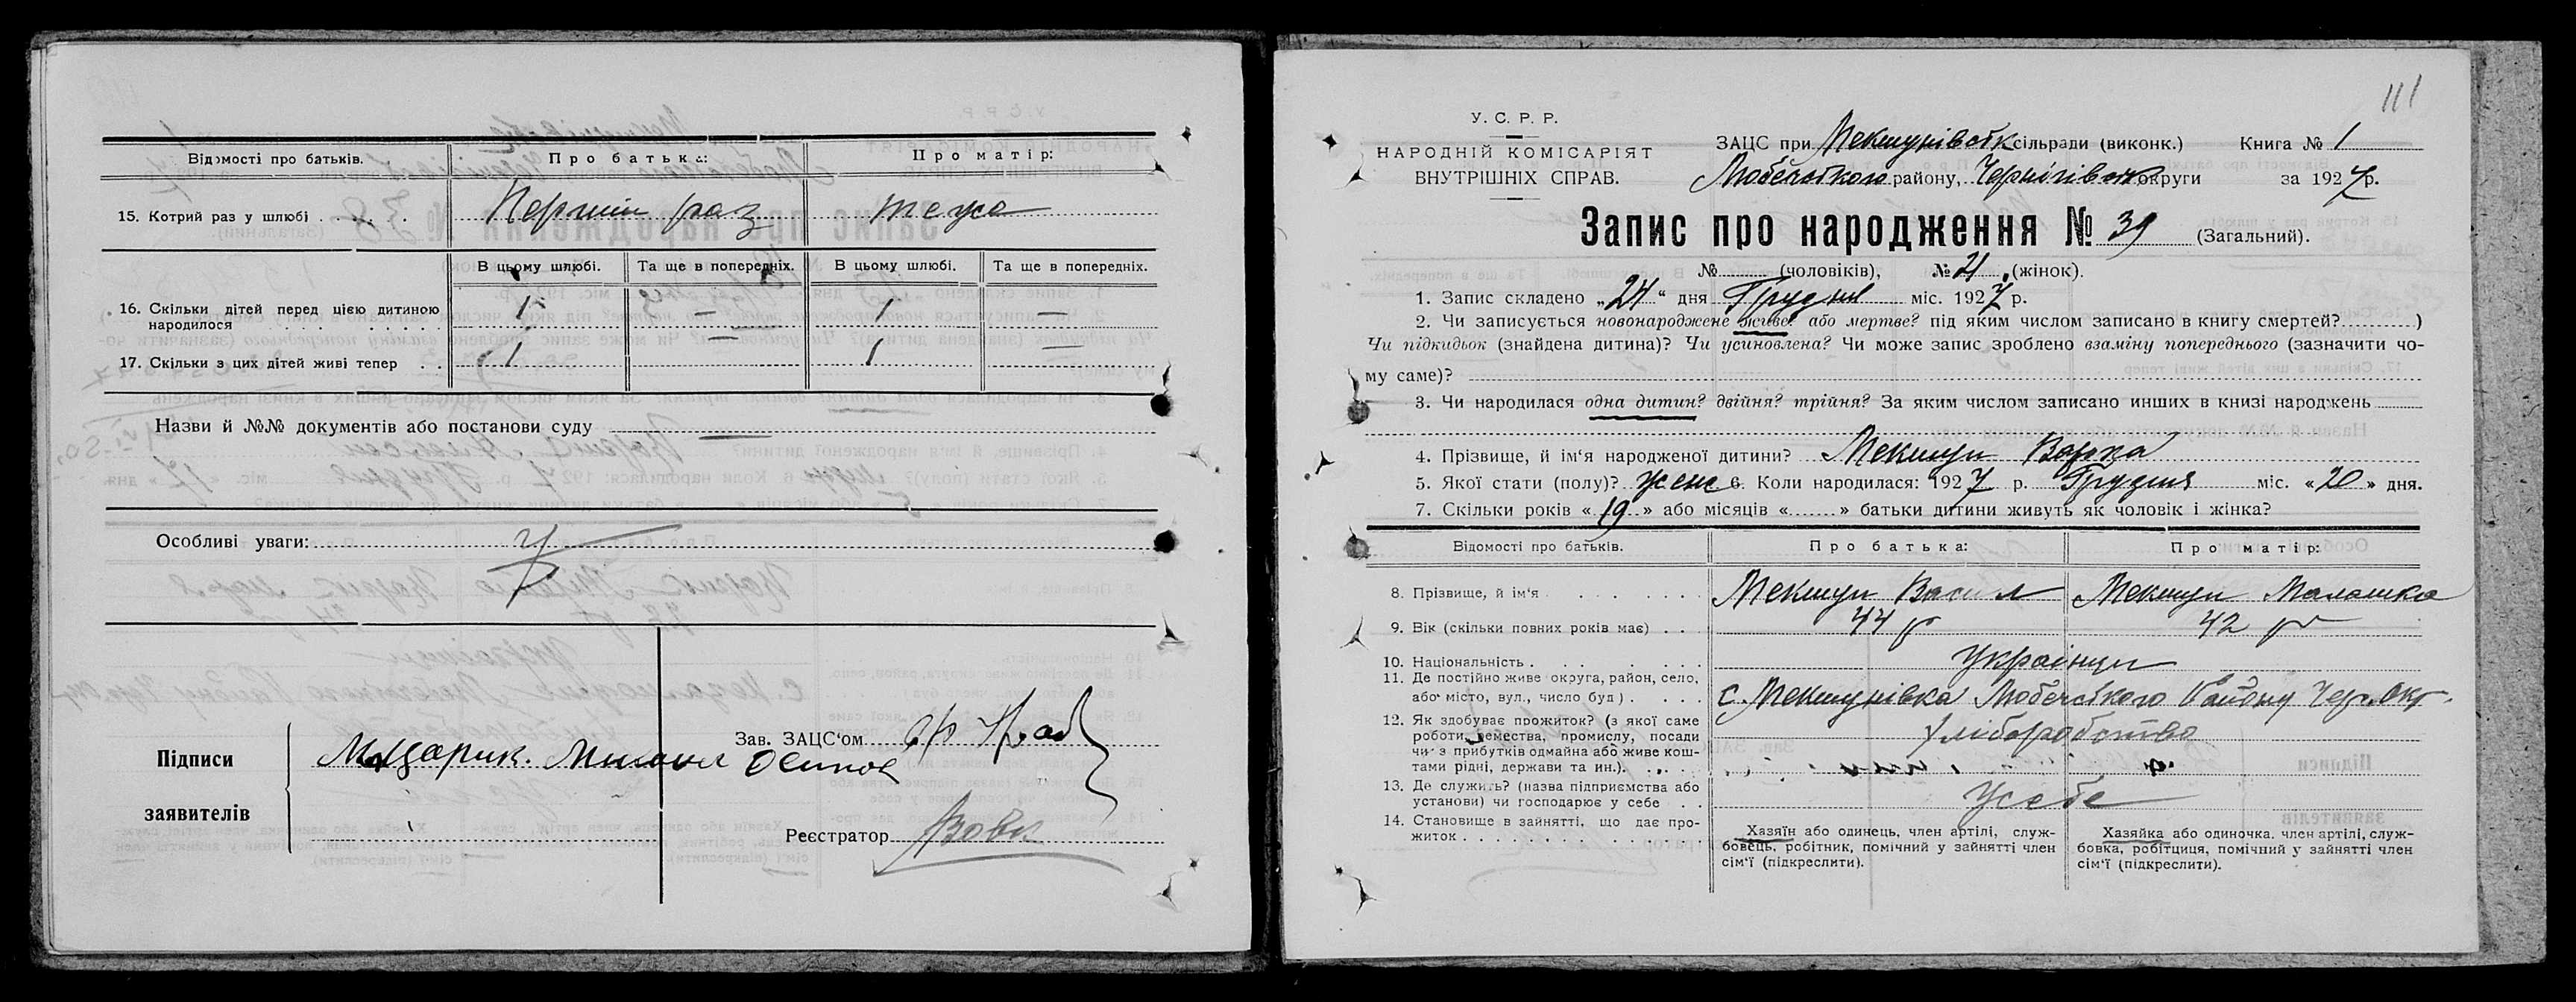 Відомості про батьків.
Про батька:
Про матір:
15. Котрий раз у шлюбі . . . .
Перший раз
тежо
В цьому шлюбі.
Та ще в попередніх.
В цьому шлюбі.
Та ще в попередніх.
16. Скільки дітей перед цією дитиною
народилося . . . . . . . .
1 — 1 —
17. Скільки з цих дітей живі тепер . .
1 — 1 —
Назви й №№ документів або постанови суду —
Особливі уваги:
Підписи
заявителів
Зав. ЗАЦС‘ом
Реєстратор Вовк
111
У. С. Р. Р.
НАРОДНІЙ КОМІСАРІЯТ
ВНУТРІШНІХ СПРАВ.
ЗАЦС при Мекшунівськ сільради (виконк.) Книга № 1
Любечського району, Чернігівськ округи за 1927 р.
Запис про народження № 39 (Загальний).
№ (чоловіків), № 21 (жінок).
1. Запис складено „24“ дня Грудня міс. 1927 р.
2. Чи записується новонароджене живе? або мертве? під яким числом записано в книгу смертей? )
Чи підкидьок (знайдена дитина)? Чи усиновлена? Чи може запис зроблено взаміну попереднього (зазначити чо-
му саме)?
3. Чи народилася одна дитин? двійня? трійня? За яким числом записано инших в книзі народжень
4. Прізвище, й ім‘я народженої дитини? Мекшун Варка
5. Якої стати (полу)? женс 6. Коли народилася: 1927 р. Грудня міс. «20» дня.
7. Скільки років «19» або місяців «......» батьки дитини живуть як чоловік і жінка?
Відомості про батьків.
Про батька:
Про матір:
8. Прізвище, й ім‘я . . . . . .
Мекшун Васил
Мекшун Малашка
9. Вік (скільки повних років має) . . .
44 р
42 р
10. Національність . . . . . .
Українци
11. Де постійно живе округа, район, село,
або місто, вул., число буд) . . . .
с. Мекшунівка Любечського Району Чер. Окр.
12. Як здобуває прожиток? (з якої саме
роботи, ремества, промислу, посади
чи з прибутків одмайна або живе кош-
тами рідні, держави та ин.). . . . .
Хліборобство
13. Де служить? (назва підприємства або
установи) чи господарює у себе . .
У себе
14. Становище в зайнятті, що дає про-
житок . . . . . . . . . . . .
Хазяїн або одинець, член артілі, служ-
бовець, робітник, помічний у зайнятті член
сім‘ї (підкреслити).
Хазяйка або одиночка, член артілі, служ-
бовка, робітциця, помічний у зайнятті член
сім‘ї (підкреслити).